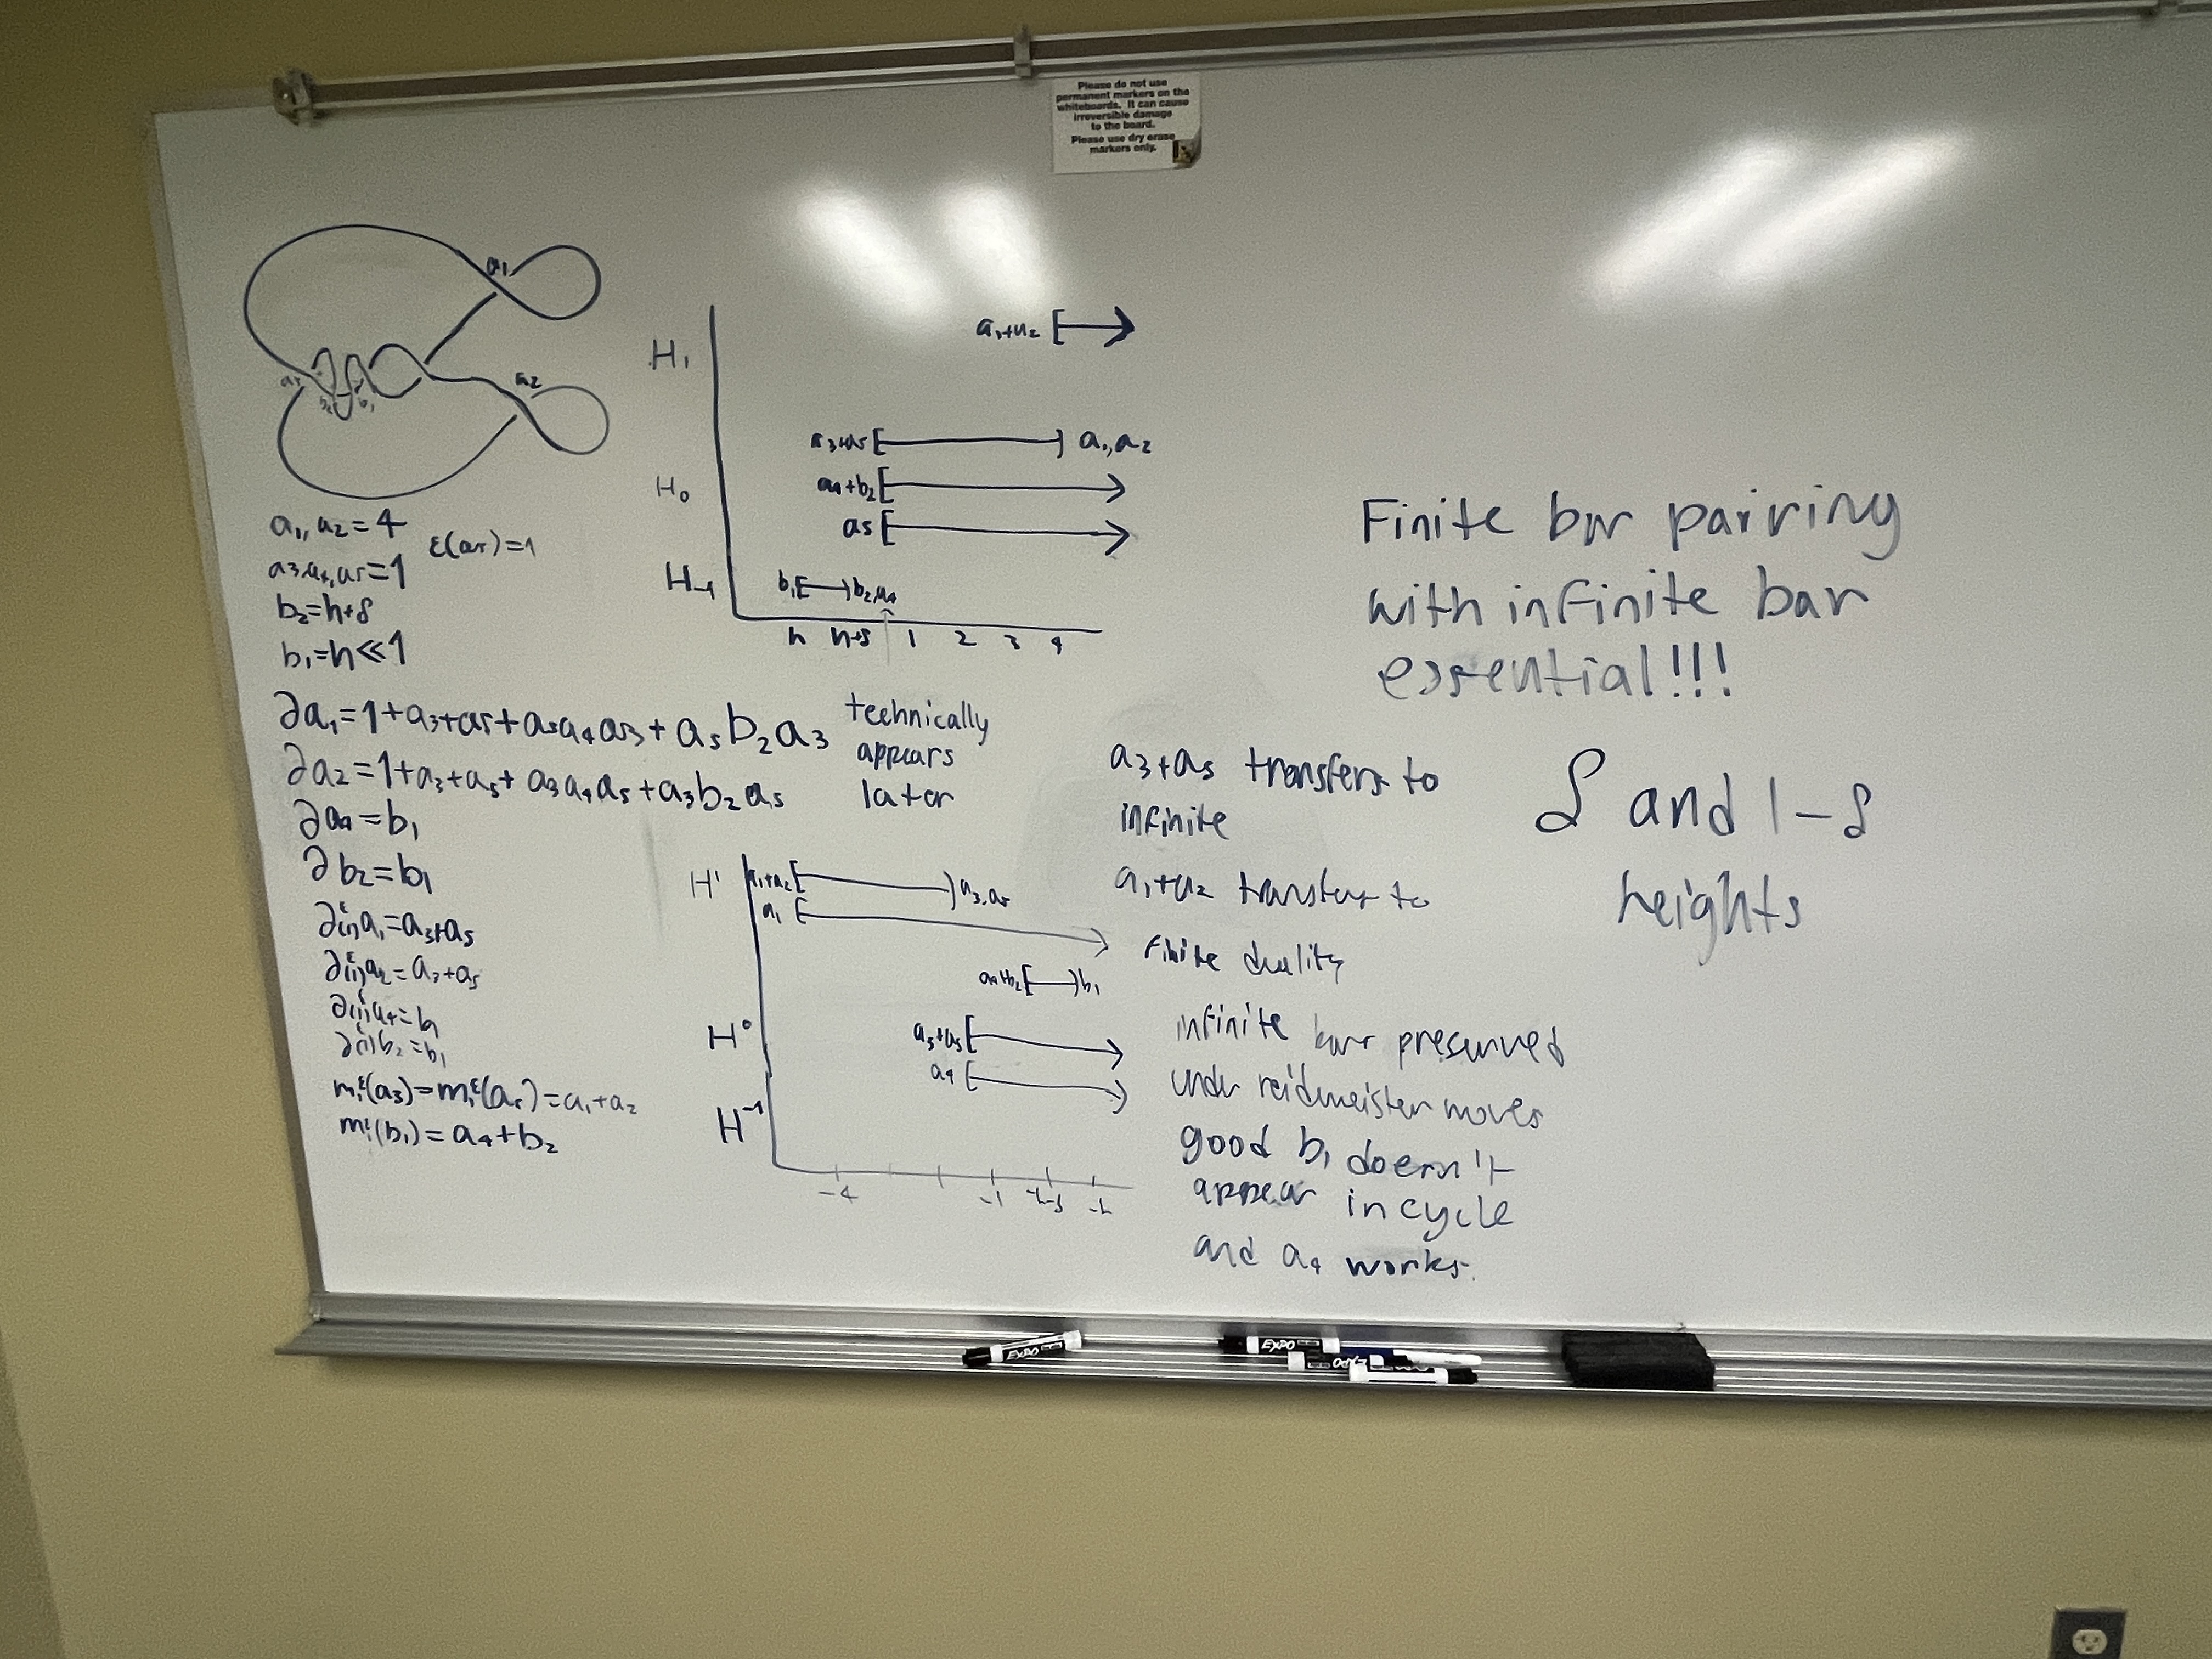 Please do not use
permanent markers on the
whiteboards. It can cause
irreversible damage
to the board.
Please use dry erase
markers only.
a₁
a₂
b₂ b₁
a₁, a₂ = 4
ε(a₅)=1
a₃,a₄,a₅=1
b₂=h+δ
b₁=h≪1
∂a₁=1+a₃+a₅+a₅a₄a₃+a₅b₂a₃
technically
appears
later
∂a₂=1+a₃+a₅+a₃a₄a₅+a₃b₂a₅
∂a₄=b₁
∂b₂=b₁
∂ᵋ₍₁₎a₁=a₃+a₅
∂ᵋ₍₁₎a₂=a₃+a₅
∂ᵋ₍₁₎a₄=b₁
∂ᵋ₍₁₎b₂=b₁
m₁ᵋ(a₃)=m₁ᵋ(a₅)=a₁+a₂
m₁ᵋ(b₁)=a₄+b₂
H₁
a₁+a₂
a₃+a₅ a₁,a₂
H₀
a₄+b₂
a₅
H₋₁
b₁ b₂,a₄
h h+δ 1 2 3 4
H¹
a₁+a₂ a₃,a₅
a₁
a₄+b₂ b₁
H⁰
a₃+a₅
a₄
H⁻¹
-4 -1 -h-δ -h
a₃+a₅ transfers to
infinite
a₁+a₂ transfer to
finite duality
infinite bar preserved
under reidmeister moves
good b₁ doesn't
appear in cycle
and a₄ works.
Finite bar pairing
with infinite bar
essential!!!
δ and 1-δ
heights
EXPO
EXPO
EXPO